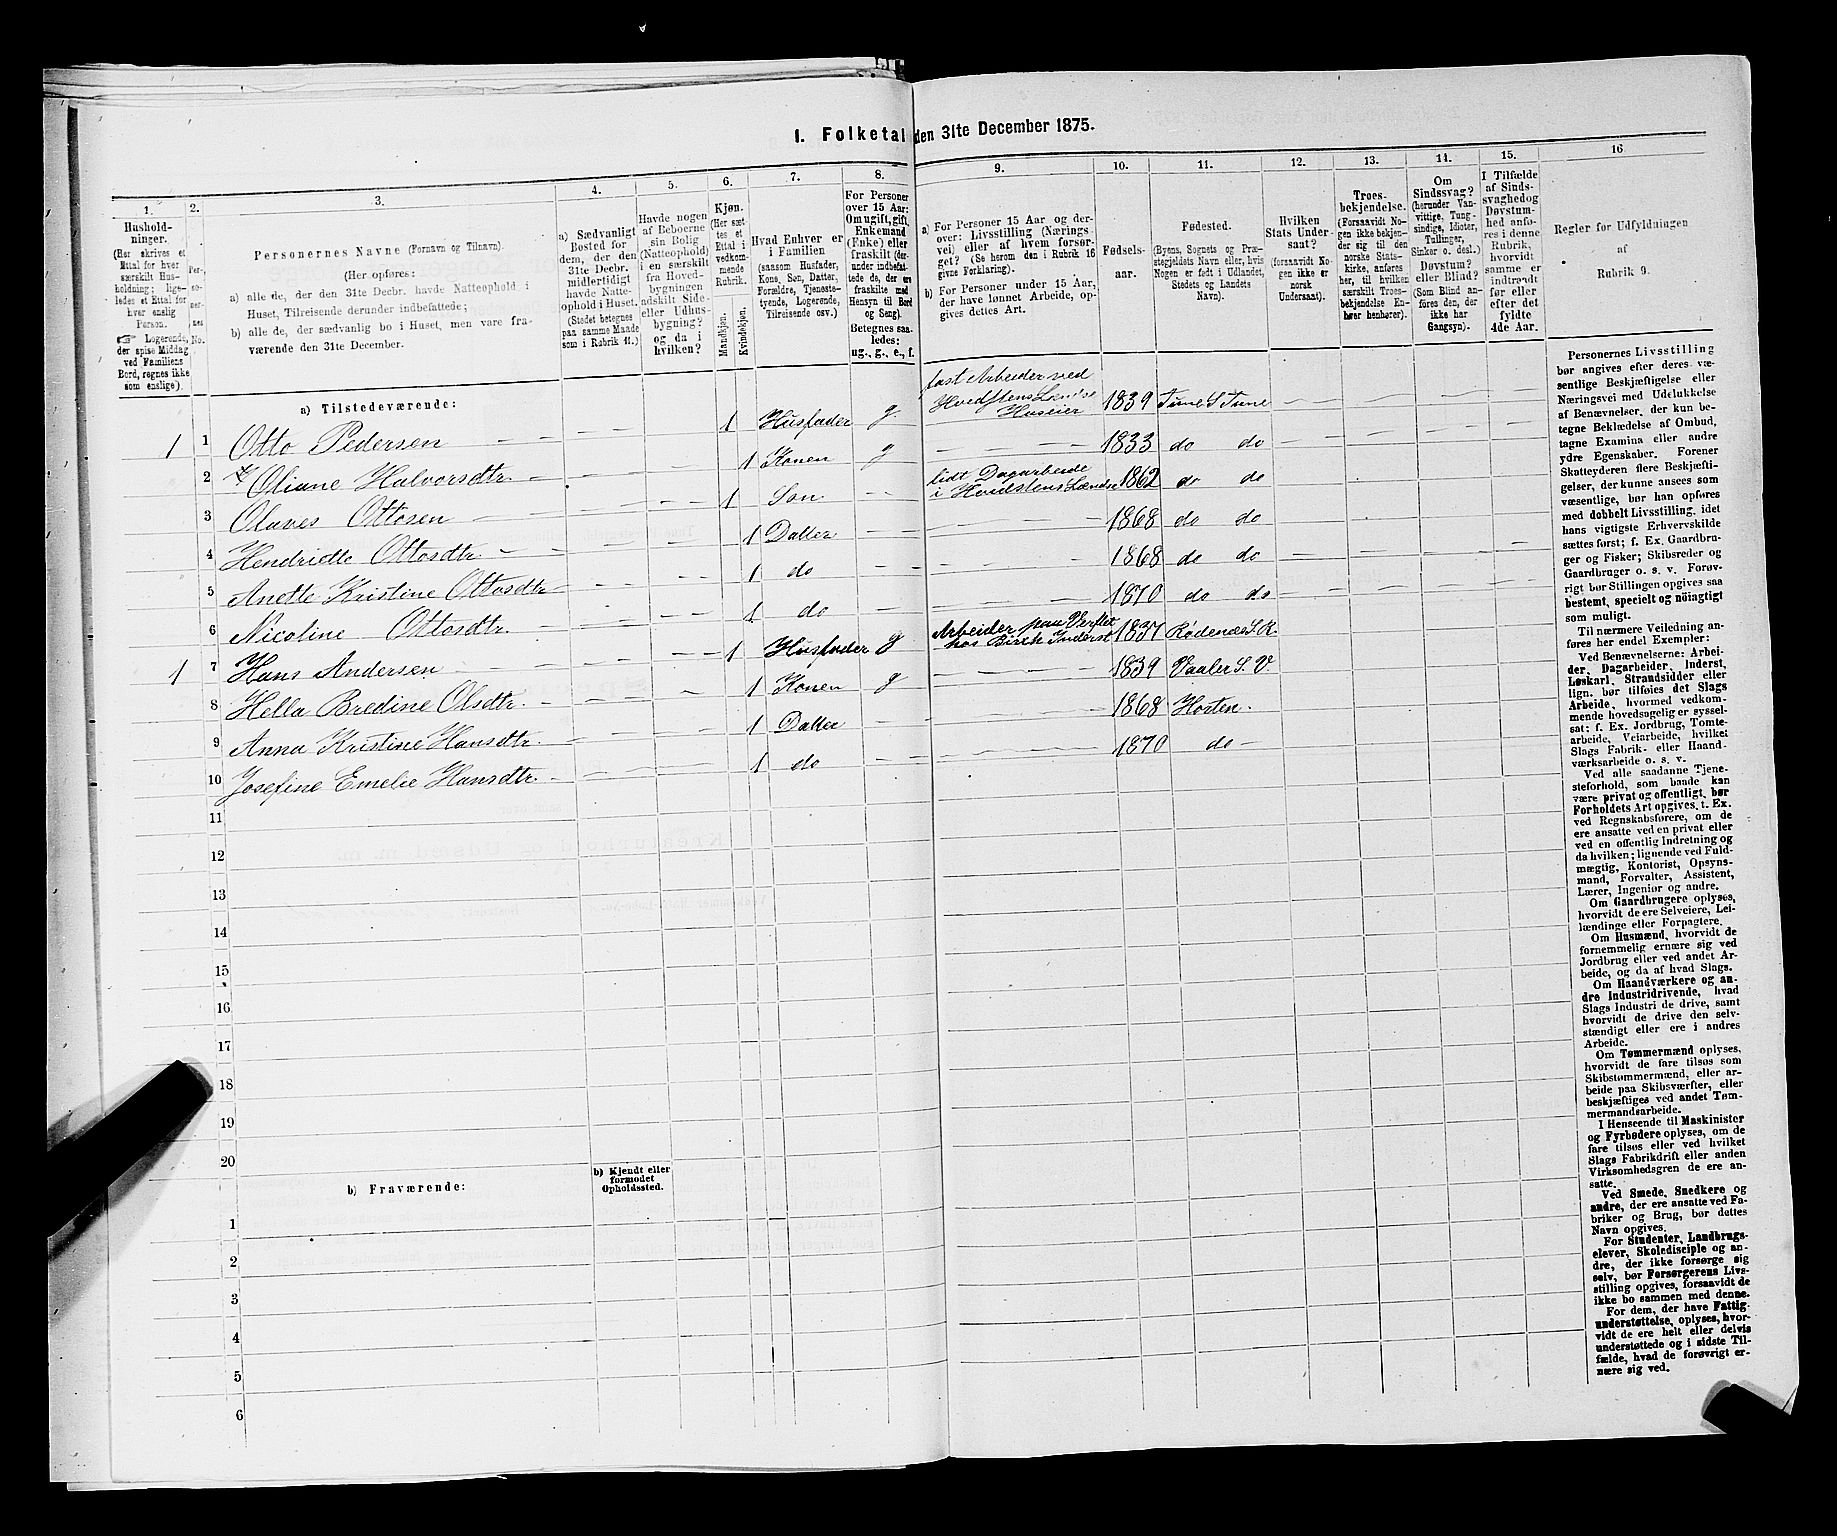 I. Folketal den 31te December 1875.
1.
Hushold-
ninger.
(Her skrives et
Ettal for hver
særskilt Hus-
holdning; lige-
ledes et Ettal for
hver enslig
Person.
☞ Logerende,
der spise Middag
ved Familiens
Bord, regnes ikke
som enslige).
2.
Per-
so-
ner-
nes
No.
3.
Personernes Navne (Fornavn og Tilnavn).
(Her opføres:
a) alle de, der den 31te Decbr. havde Natteophold i
Huset, Tilreisende derunder indbefattede;
b) alle de, der sædvanlig bo i Huset, men vare fra-
værende den 31te December.
4.
a) Sædvanligt
Bosted for
dem, der den
31te Decbr.
midlertidigt
havde Natte-
ophold i Huset.
(Stedet betegnes
paa samme Maade
som i Rubrik 11.)
5.
Havde nogen
af Beboerne
sin Bolig
(Natteophold)
i en særskilt
fra Hoved-
bygningen
adskilt Side-
eller Udhus-
bygning?
og da i
hvilken?
6.
Kjøn.
(Her sæt-
tes et
Ettal i
vedkom-
mende
Rubrik.
Mandkjøn.
Kvindekjøn.
7.
Hvad Enhver er
i Familien
(saasom Husfader,
Kone, Søn, Datter,
Forældre, Tjeneste-
tyende, Logerende,
Tilreisende osv.)
8.
For Personer
over 15 Aar:
Om ugift, gift,
Enkemand
(Enke) eller
fraskilt (der-
under indbefat-
tede de, der ere
fraskilte med
Hensyn til Bord
og Seng).
Betegnes saa-
ledes:
ug., g., e., f.
9.
a) For Personer 15 Aar og der-
over: Livsstilling (Nærings-
vei) eller af hvem forsør-
get? (Se herom den i Rubrik 16
givne Forklaring).
b) For Personer under 15 Aar,
der have lønnet Arbeide, op-
gives dettes Art.
10.
Fødsels-
aar.
11.
Fødested.
(Byens, Sognets og Præ-
stegjeldets Navn eller, hvis
Nogen er født i Udlandet,
Stedets og Landets
Navn).
12.
Hvilken
Stats Under-
saat?
(forsaavidt No-
gen ikke er
norsk
Undersaat).
13.
Troes-
bekjendelse.
(Forsaavidt No-
gen ikke bekjen-
der sig til den
norske Stats-
kirke, anføres
her, til hvilken
særskilt Troes-
bekjendelse En-
hver henhører).
14.
Om
Sindssvag?
(herunder Van-
vittige, Tung-
sindige, Idioter,
Tullinger,
Sinker o. desl.)
Døvstum?
eller Blind?
(Som Blind an-
føres den, der
ikke har
Gangsyn).
15.
I Tilfælde
af Sinds-
svaghedog
Døvstum-
hed anfø-
res i denne
Rubrik,
hvorvidt
samme er
indtraadt
før eller
efter det
fyldte
4de Aar.
16
Regler før Udfyldningen
af
Rubrik 9.
a) Tilstedeværende:
1 1 Otto Pedersen 1 Husfader g fast Arbeider ved Hvidstens Husier 1839 Tune S Tune
2 Oliane Halvorsdtr. 1 Konen g 1833 do do
3 Olaves Ottosen 1 Søn lidt Dagarbeide i Hvidstens Lændse 1862 do do
4 Hendriette Ottosdtr. 1 Datter 1868 do do
5 Anette Kristine Ottosdtr 1 do 1868 do do
6 Nicoline Ottosdtr. 1 do 1870 do do
1 7 Hans Andersen 1 Husfader g Arbeider paa Verftet hos Birch Inderst 1837 Rødenæs S. R.
8 Hella Bredine Olsdtr. 1 Konen g 1839 Vaaler S. V.
9 Anna Kristine Hansdtr. 1 Datter 1868 Hosten.
10 Josefine Emelie Hansdtr. 1 do 1870 do
11
12
13
14
15
16
17
18
19
20
b) Fraværende:
b) Kjendt eller
formodet
Opholdssted.
1
2
3
4
5
6
Personernes Livsstilling
bør angives efter deres væ-
sentlige Beskjæftigelse eller
Næringsvei med Udelukkelse
af Benævnelser, der kun be-
tegne Beklædelse af Ombud,
tagne Examina eller andre
ydre Egenskaber. Forener
Skatteyderen flere Beskjæfti-
gelser, der kunne ansees som
væsentlige, bør han opføres
med dobbelt Livsstilling, idet
hans vigtigste Erhvervskilde
sættes først; f. Ex. Gaardbru-
ger og Fisker; Skibsreder og
Gaardbruger o. s. v. Forøv-
rigt bør Stillingen opgives saa
bestemt, specielt og nöiagtigt
som muligt.
Til nærmere Veiledning an-
føres her endel Exempler:
Ved Benævnelserne: Arbei-
der, Dagarbeider, Inderst,
Løskarl, Strandsidder eller
lign. bør tilføies det Slags
Arbeide, hvormed vedkom-
mende hovedsagelig er syssel-
sat; f. Ex. Jordbrug, Tomte-
arbeide, Veiarbeide, hvilket
Slags Fabrik- eller Haand-
værksarbeide o. s. v.
Ved alle saadanne Tjene-
steforhold, som baade kan
være privat og offentligt, bør
Forholdets Art opgives, t. Ex.
ved Regnskabsførere, om de
ere ansatte ved en privat eller
ved en offentlig Indretning og
da hvilken; lignende ved Fuld-
mægtig, Kontorist, Opsyns-
mand, Forvalter, Assistent,
Lærer, Ingeniør og andre.
Om Gaardbrugere oplyses,
hvorvidt de ere Selveiere, Lei-
lændinge eller Forpagtere.
Om Husmænd, hvorvidt de
fornemmelig ernære sig ved
Jordbrug eller ved andet Ar-
beide, og da af hvad Slags.
Om Haandværkere og an-
dre Industridrivende, hvad
Slags Industri de drive, samt
hvorvidt de drive den selv-
stændigt eller ere i andres
Arbeide.
Om Tømmermænd oplyses,
hvorvidt de fare tilsøs som
Skibstømmermænd, eller ar-
beide paa Skibsværfter, eller
beskjæftiges ved andet Tøm-
mermandsarbeide.
I Henseende til Maskinister
og Fyrbødere oplyses, om de
fare tilsøs eller ved hvilket
Slags Fabrikdrift eller anden
Virksomhedsgren de ere an-
satte.
Ved Smede, Snedkere og
andre, der ere ansatte ved Fa-
briker og Brug, bør dettes
Navn opgives.
For Studenter, Landbrugs-
elever, Skoledisciple og an-
dre, der ikke forsørge sig
selv, bør Forsørgerens Livs-
stilling opgives, forsaavidt de
ikke bo sammen med denne.
For dem, der have Fattig-
understøttelse, oplyses, hvor-
vidt de ere helt eller delvis
understøttede og i sidste Til-
fælde, hvad de forøvrigt er-
nære sig ved.